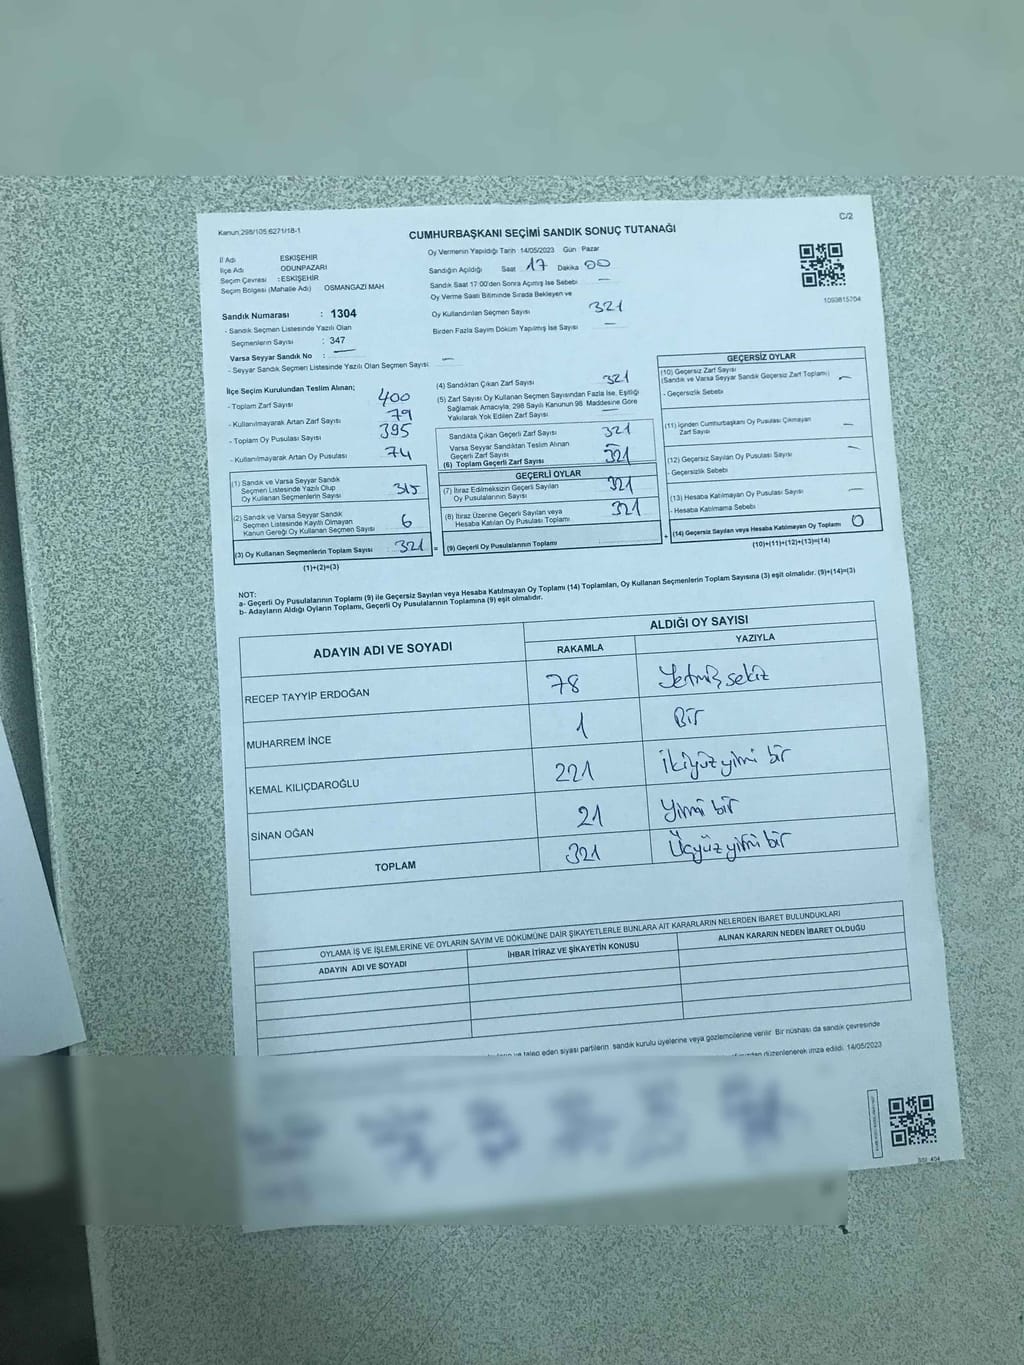 Kanun:298/105,6271/18-1
C/2
CUMHURBAŞKANI SEÇİMİ SANDIK SONUÇ TUTANAĞI
İl Adı ESKİŞEHİR
İlçe Adı ODUNPAZARI
Seçim Çevresi : ESKİŞEHİR
Seçim Bölgesi (Mahalle Adı) OSMANGAZİ MAH
Oy Vermenin Yapıldığı Tarih 14/05/2023 Gün Pazar
Sandığın Açıldığı Saat 17 Dakika 00
Sandık Saat 17:00'den Sonra Açımış İse Sebebi —
Oy Verme Saati Bitiminde Sırada Bekleyen ve
Oy Kullandırılan Seçmen Sayısı 321
Birden Fazla Sayım Döküm Yapılmış İse Sayısı —
1093815704
Sandık Numarası : 1304
- Sandık Seçmen Listesinde Yazılı Olan
Seçmenlerin Sayısı : 347
Varsa Seyyar Sandık No : —
- Seyyar Sandık Seçmen Listesinde Yazılı Olan Seçmen Sayısı —
İlçe Seçim Kurulundan Teslim Alınan;
- Toplam Zarf Sayısı 400
- Kullanılmayarak Artan Zarf Sayısı 79
- Toplam Oy Pusulası Sayısı 395
- Kullanılmayarak Artan Oy Pusulası 74
(1) Sandık ve Varsa Seyyar Sandık
Seçmen Listesinde Yazılı Olup
Oy Kullanan Seçmenlerin Sayısı 315
(2) Sandık ve Varsa Seyyar Sandık
Seçmen Listesinde Kayıtlı Olmayan
Kanun Gereği Oy Kullanan Seçmen Sayısı 6
(3) Oy Kullanan Seçmenlerin Toplam Sayısı 321 =
(1)+(2)=(3)
(4) Sandıktan Çıkan Zarf Sayısı 321
(5) Zarf Sayısı Oy Kullanan Seçmen Sayısından Fazla İse, Eşitliği
Sağlamak Amacıyla, 298 Sayılı Kanunun 98. Maddesine Göre
Yakılarak Yok Edilen Zarf Sayısı —
Sandıkta Çıkan Geçerli Zarf Sayısı 321
Varsa Seyyar Sandıktan Teslim Alınan
Geçerli Zarf Sayısı —
(6) Toplam Geçerli Zarf Sayısı 321
GEÇERLİ OYLAR
(7) İtiraz Edilmeksizin Geçerli Sayılan
Oy Pusulalarının Sayısı 321
(8) İtiraz Üzerine Geçerli Sayılan veya
Hesaba Katılan Oy Pusulası Toplamı 321
(9) Geçerli Oy Pusulalarının Toplamı +
GEÇERSİZ OYLAR
(10) Geçersiz Zarf Sayısı
(Sandık ve Varsa Seyyar Sandık Geçersiz Zarf Toplamı) —
- Geçersizlik Sebebi
(11) İçinden Cumhurbaşkanı Oy Pusulası Çıkmayan
Zarf Sayısı —
(12) Geçersiz Sayılan Oy Pusulası Sayısı —
- Geçersizlik Sebebi
(13) Hesaba Katılmayan Oy Pusulası Sayısı —
- Hesaba Katılmama Sebebi
(14) Geçersiz Sayılan veya Hesaba Katılmayan Oy Toplamı 0
(10)+(11)+(12)+(13)=(14)
NOT:
a- Geçerli Oy Pusulalarının Toplamı (9) ile Geçersiz Sayılan veya Hesaba Katılmayan Oy Toplamı (14) Toplamları, Oy Kullanan Seçmenlerin Toplam Sayısına (3) eşit olmalıdır. (9)+(14)=(3)
b- Adayların Aldığı Oyların Toplamı, Geçerli Oy Pusulalarının Toplamına (9) eşit olmalıdır.
ADAYIN ADI VE SOYADI ALDIĞI OY SAYISI
RAKAMLA YAZIYLA
RECEP TAYYİP ERDOĞAN 78 Yetmiş sekiz
MUHARREM İNCE 1 Bir
KEMAL KILIÇDAROĞLU 221 İkiyüz yirmi bir
SİNAN OĞAN 21 Yirmi bir
TOPLAM 321 Üçyüz yirmi bir
OYLAMA İŞ VE İŞLEMLERİNE VE OYLARIN SAYIM VE DÖKÜMÜNE DAİR ŞİKAYETLERLE BUNLARA AİT KARARLARIN NELERDEN İBARET BULUNDUKLARI
ADAYIN ADI VE SOYADI İHBAR İTİRAZ VE ŞİKAYETİN KONUSU ALINAN KARARIN NEDEN İBARET OLDUĞU
ve talep eden siyasi partilerin sandık kurulu üyelerine veya gözlemcilerine verilir Bir nüshası da sandık çevresinde
düzenlenerek imza edildi. 14/05/2023